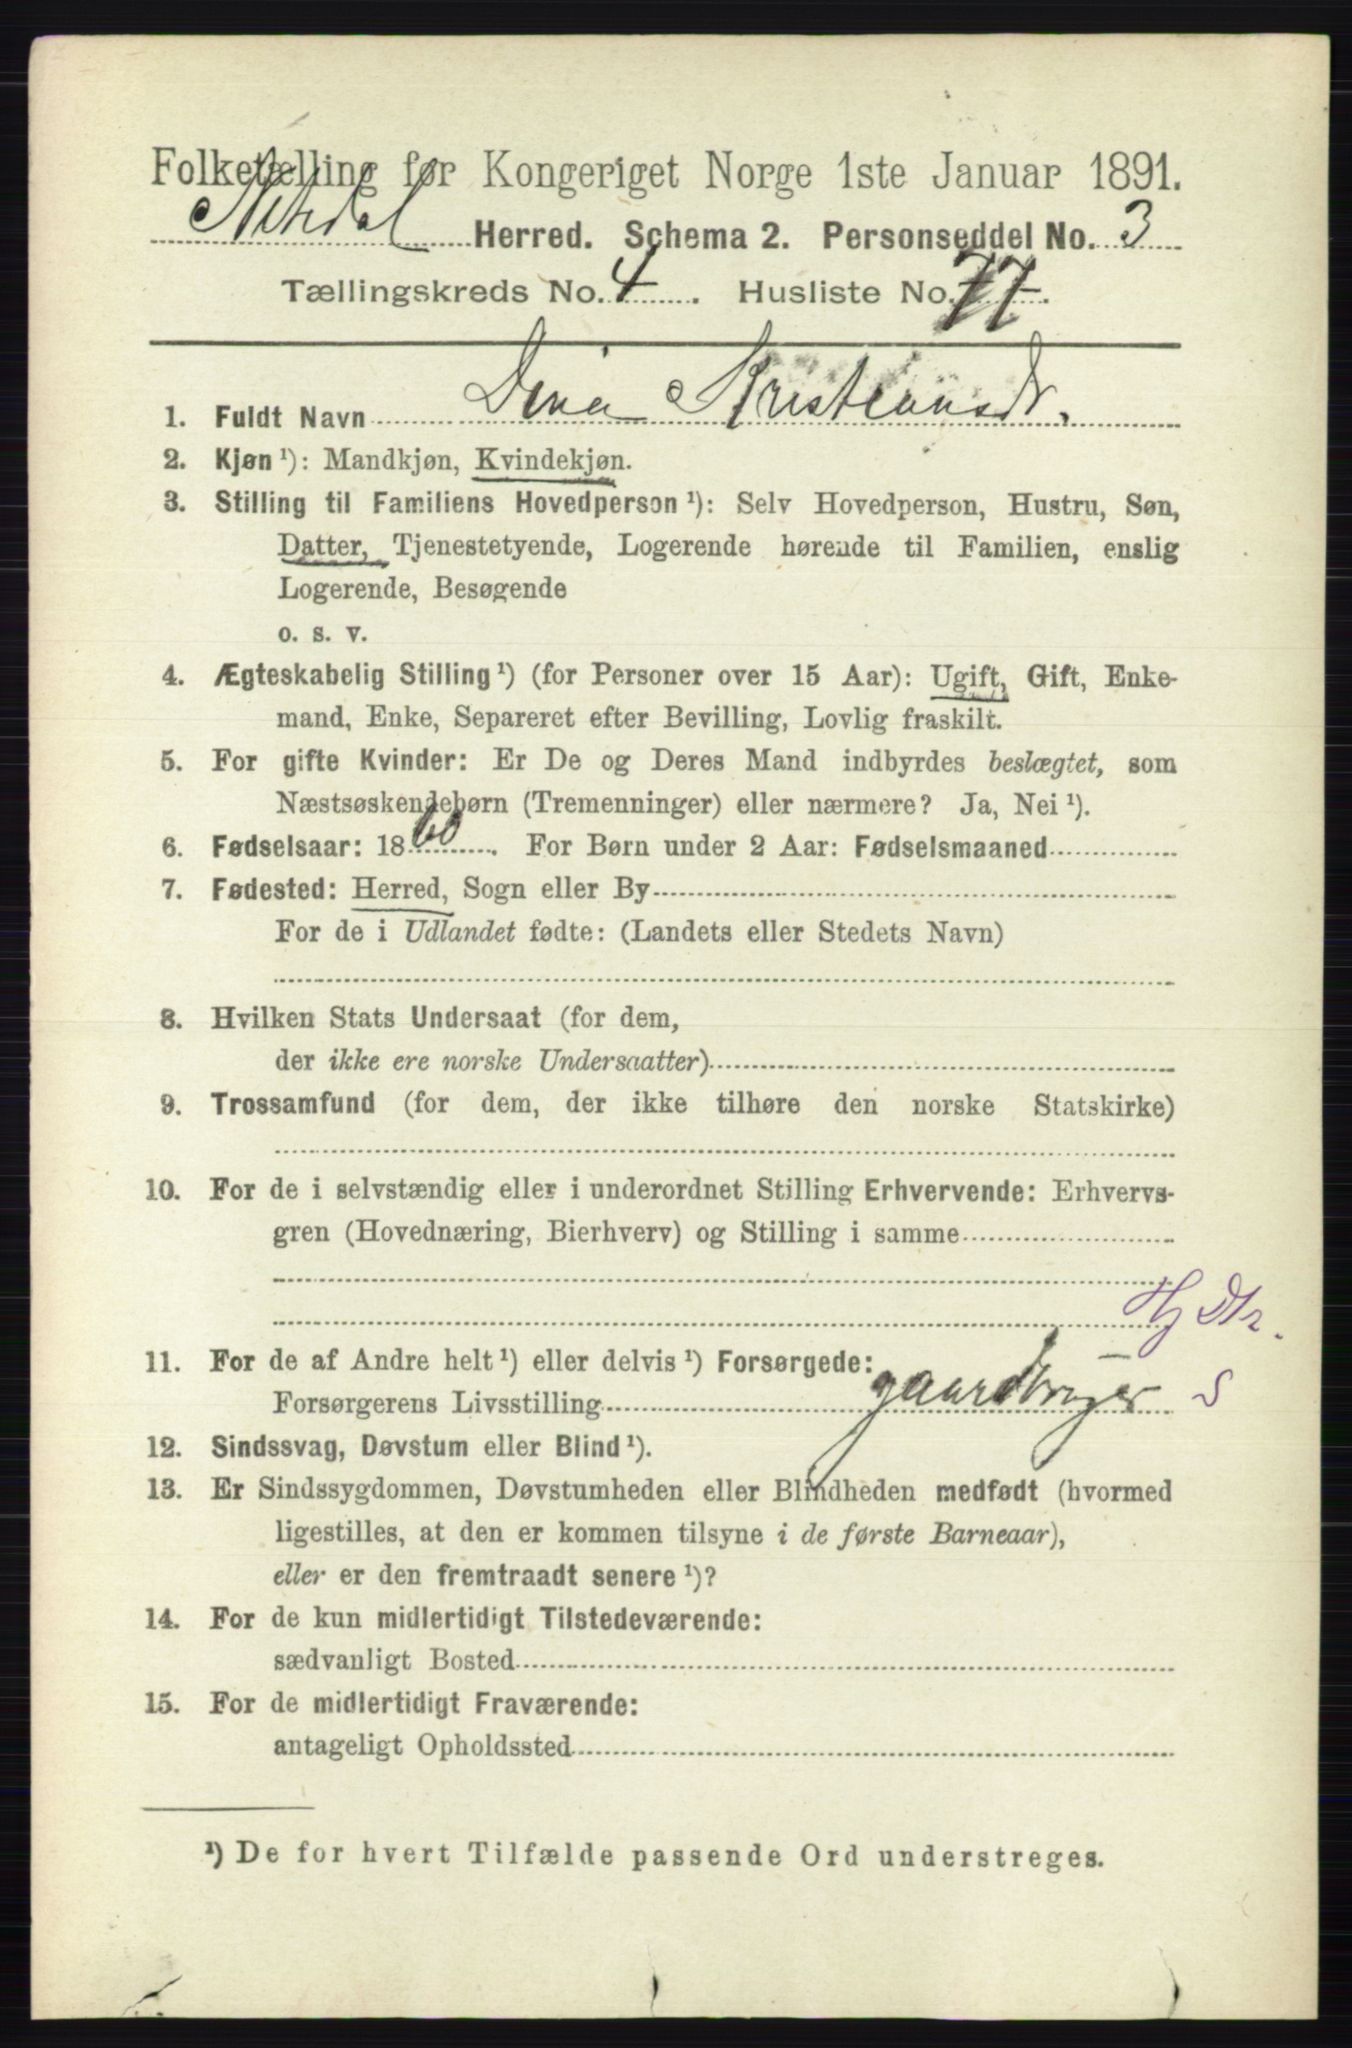 Folketælling for Kongeriget Norge 1ste Januar 1891.
Nitedal Herred. Schema 2. Personseddel No. 3
Tællingskreds No. 4. Husliste No. 77.
1. Fuldt Navn Dina Kristiansdr.
2. Kjøn ¹): Mandkjøn, Kvindekjøn.
3. Stilling til Familiens Hovedperson ¹): Selv Hovedperson, Hustru, Søn,
Datter, Tjenestetyende, Logerende hørende til Familien, enslig
Logerende, Besøgende
o. s. v.
4. Ægteskabelig Stilling ¹) (for Personer over 15 Aar): Ugift, Gift, Enke-
mand, Enke, Separeret efter Bevilling, Lovlig fraskilt.
5. For gifte Kvinder: Er De og Deres Mand indbyrdes beslægtet, som
Næstsøskendebørn (Tremenninger) eller nærmere? Ja, Nei ¹).
6. Fødselsaar: 1860. For Børn under 2 Aar: Fødselsmaaned
7. Fødested: Herred, Sogn eller By
For de i Udlandet fødte: (Landets eller Stedets Navn)
8. Hvilken Stats Undersaat (for dem,
der ikke ere norske Undersaatter)
9. Trossamfund (for dem, der ikke tilhøre den norske Statskirke)
10. For de i selvstændig eller i underordnet Stilling Erhvervende: Erhvervs-
gren (Hovednæring, Bierhverv) og Stilling i samme
Hj Dtr.
11. For de af Andre helt ¹) eller delvis ¹) Forsørgede:
Forsørgerens Livsstilling gaardbruger S
12. Sindssvag, Døvstum eller Blind ¹).
13. Er Sindssygdommen, Døvstumheden eller Blindheden medfødt (hvormed
ligestilles, at den er kommen tilsyne i de første Barneaar),
eller er den fremtraadt senere ¹)?
14. For de kun midlertidigt Tilstedeværende:
sædvanligt Bosted
15. For de midlertidigt Fraværende:
antageligt Opholdssted
¹) De for hvert Tilfælde passende Ord understreges.